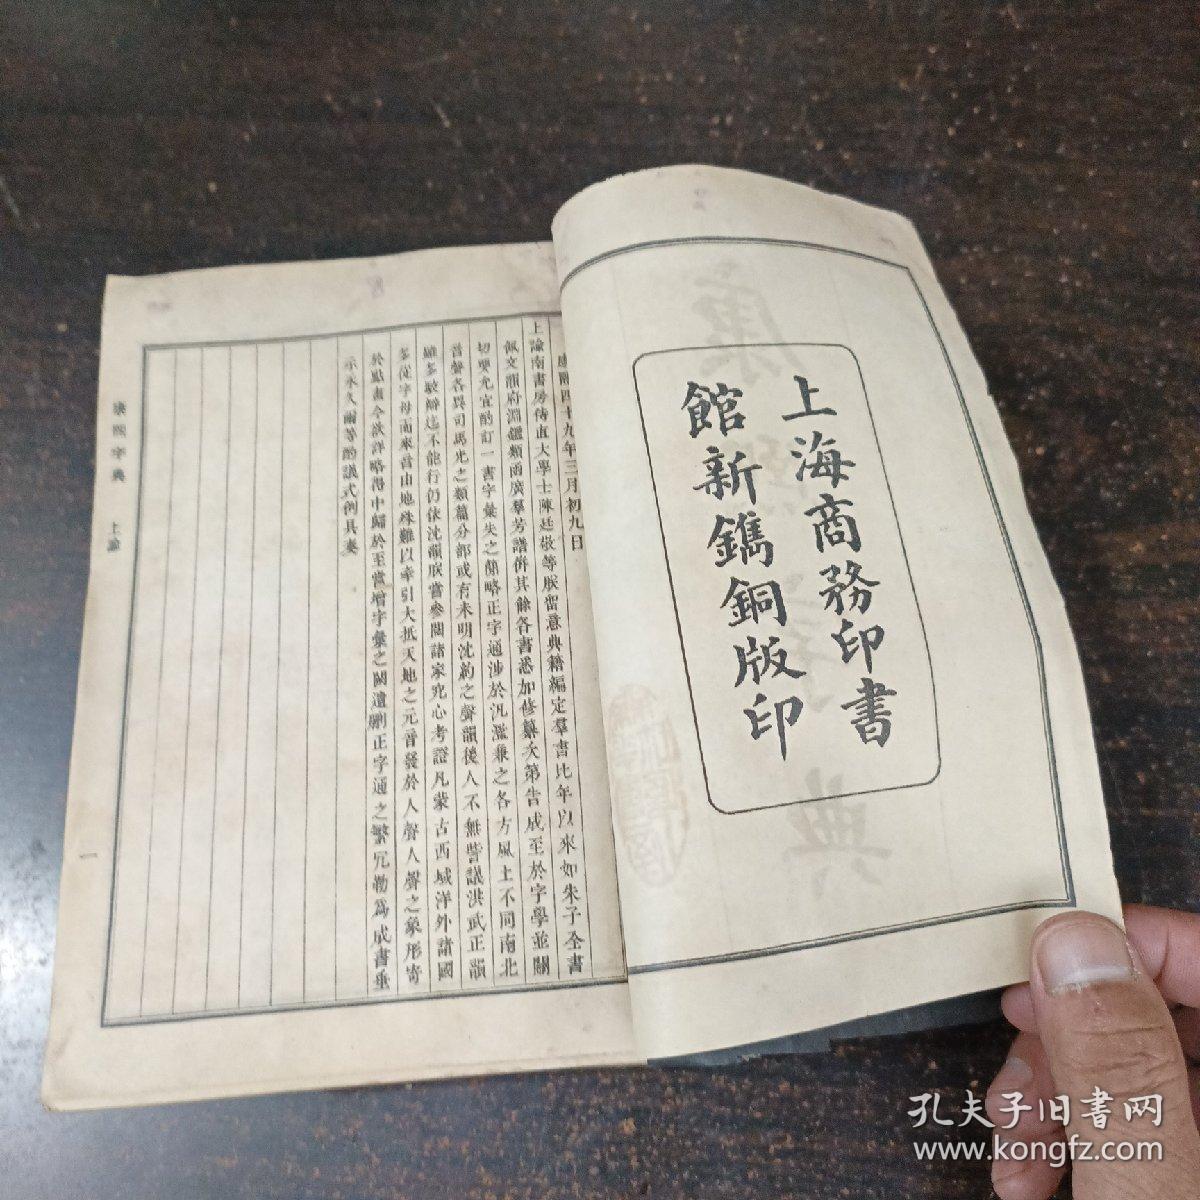 上海商務印書
館新鐫銅版印
康熙四十九年三月初九日
上諭南書房侍直大學士陳廷敬等朕留意典籍編定羣書比年以來如朱子全書
佩文韻府淵鑑類函廣羣芳譜併其餘各書悉加修纂次第告成至於字學並關
切要允宜酌訂一書字彙失之簡略正字通涉於汎濫兼之各方風土不同南北
音聲各異司馬光之類篇分部或有未明沈約之聲韻後人不無訾議洪武正韻
雖多駮辯迄不能行仍依沈韻朕嘗參閱諸家究心考證凡蒙古西域洋外諸國
多從字母而來音由地殊難以牽引大抵天地之元音發於人聲人聲之象形寄
於點畫今欲詳略得中歸於至當增字彙之闕遺刪正字通之繁冗勒為成書垂
示永久爾等酌議式例具奏
康熙字典
上諭
一
孔夫子旧书网
www.kongfz.com